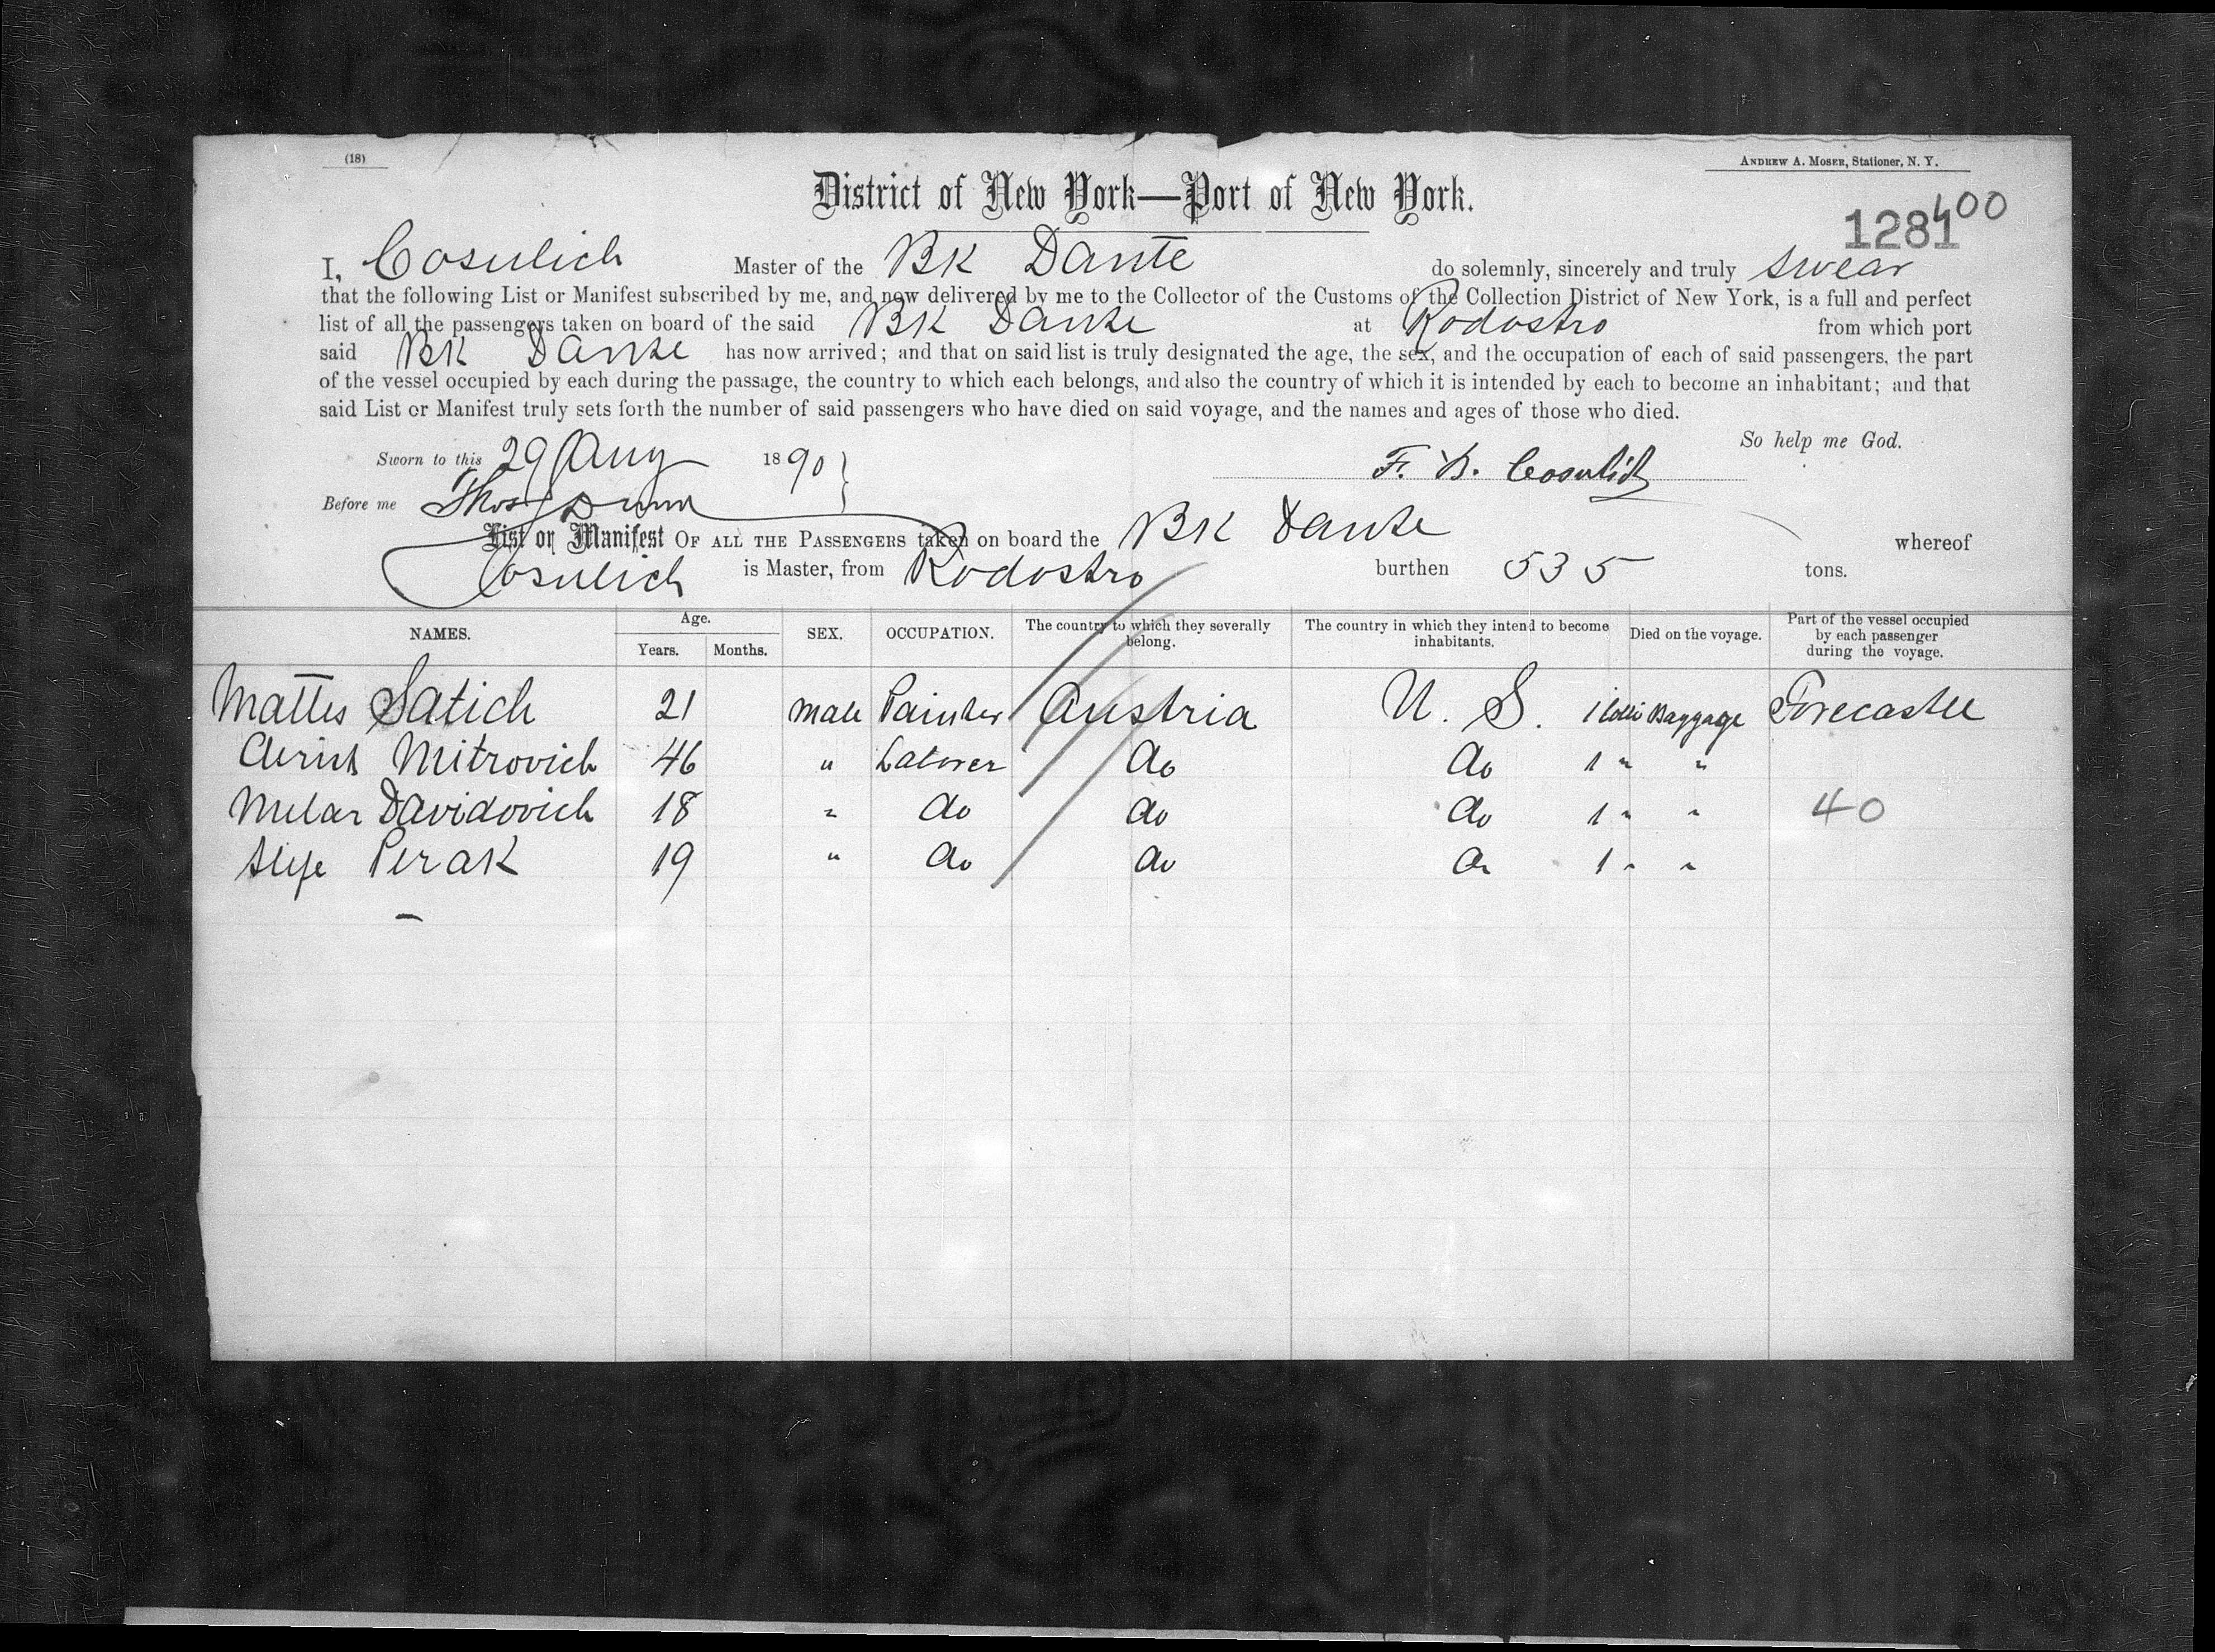 (18)
ANDREW A. MOSER, Stationer, N. Y.
District of New York—Port of New York.
1281 400
I, Cosulich Master of the BK Dante do solemnly, sincerely and truly swear
that the following List or Manifest subscribed by me, and now delivered by me to the Collector of the Customs of the Collection District of New York, is a full and perfect
list of all the passengers taken on board of the said BK Dante at Rodostro from which port
said BK Dante has now arrived; and that on said list is truly designated the age, the sex, and the occupation of each of said passengers, the part
of the vessel occupied by each during the passage, the country to which each belongs, and also the country of which it is intended by each to become an inhabitant; and that
said List or Manifest truly sets forth the number of said passengers who have died on said voyage, and the names and ages of those who died.
So help me God.
Sworn to this 29 Aug 1890
F. Cosulich
Before me Thos Dunn
List or Manifest OF ALL THE PASSENGERS taken on board the BK Dante whereof
Cosulich is Master, from Rodostro burthen 535 tons.
NAMES. Age. Years. Months. SEX. OCCUPATION. The country to which they severally belong. The country in which they intend to become inhabitants. Died on the voyage. Part of the vessel occupied by each passenger during the voyage.
Mattes Satich 21 male Painter Austria U. S. 1 Colli Baggage Forecastle
Mitrovich 46 " Laborer do do 1 " "
Davidovich 18 " do do do 1 " " 40
Perak 19 " do do do 1 " "